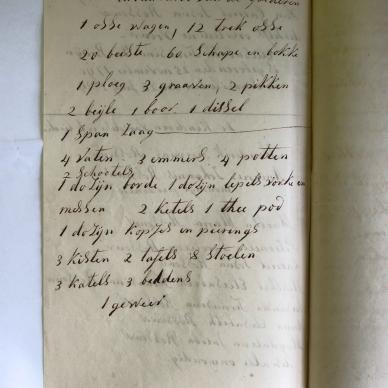 van de goederen
1 osse wagen, 12 trek osse
20 beeste 60 Schape en bokke
1 ploeg 3 graaven, 2 pikken
2 beijle 1 boor 1 dissel
1 Span Zaag
4 vaten 3 emmers 4 potten
2 Schootels
1 dozijn borde 1 dozijn lepels vorke en
messen 2 ketels 1 thee pod
1 dozijn kopjes en pierings
3 kisten 2 tafels 8 Stoelen
3 katels 3 beddens
1 geweer